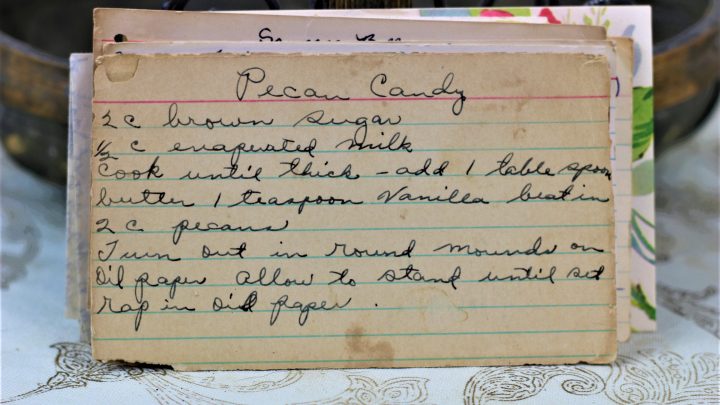 Pecan Candy
2 c brown sugar
1/2 c evaperated milk
Cook until thick - add 1 table spoon
butter 1 teaspoon Vanilla beat in
2 c pecans
Turn out in round mounds on
Oil paper allow to stand until set
rap in oil paper .